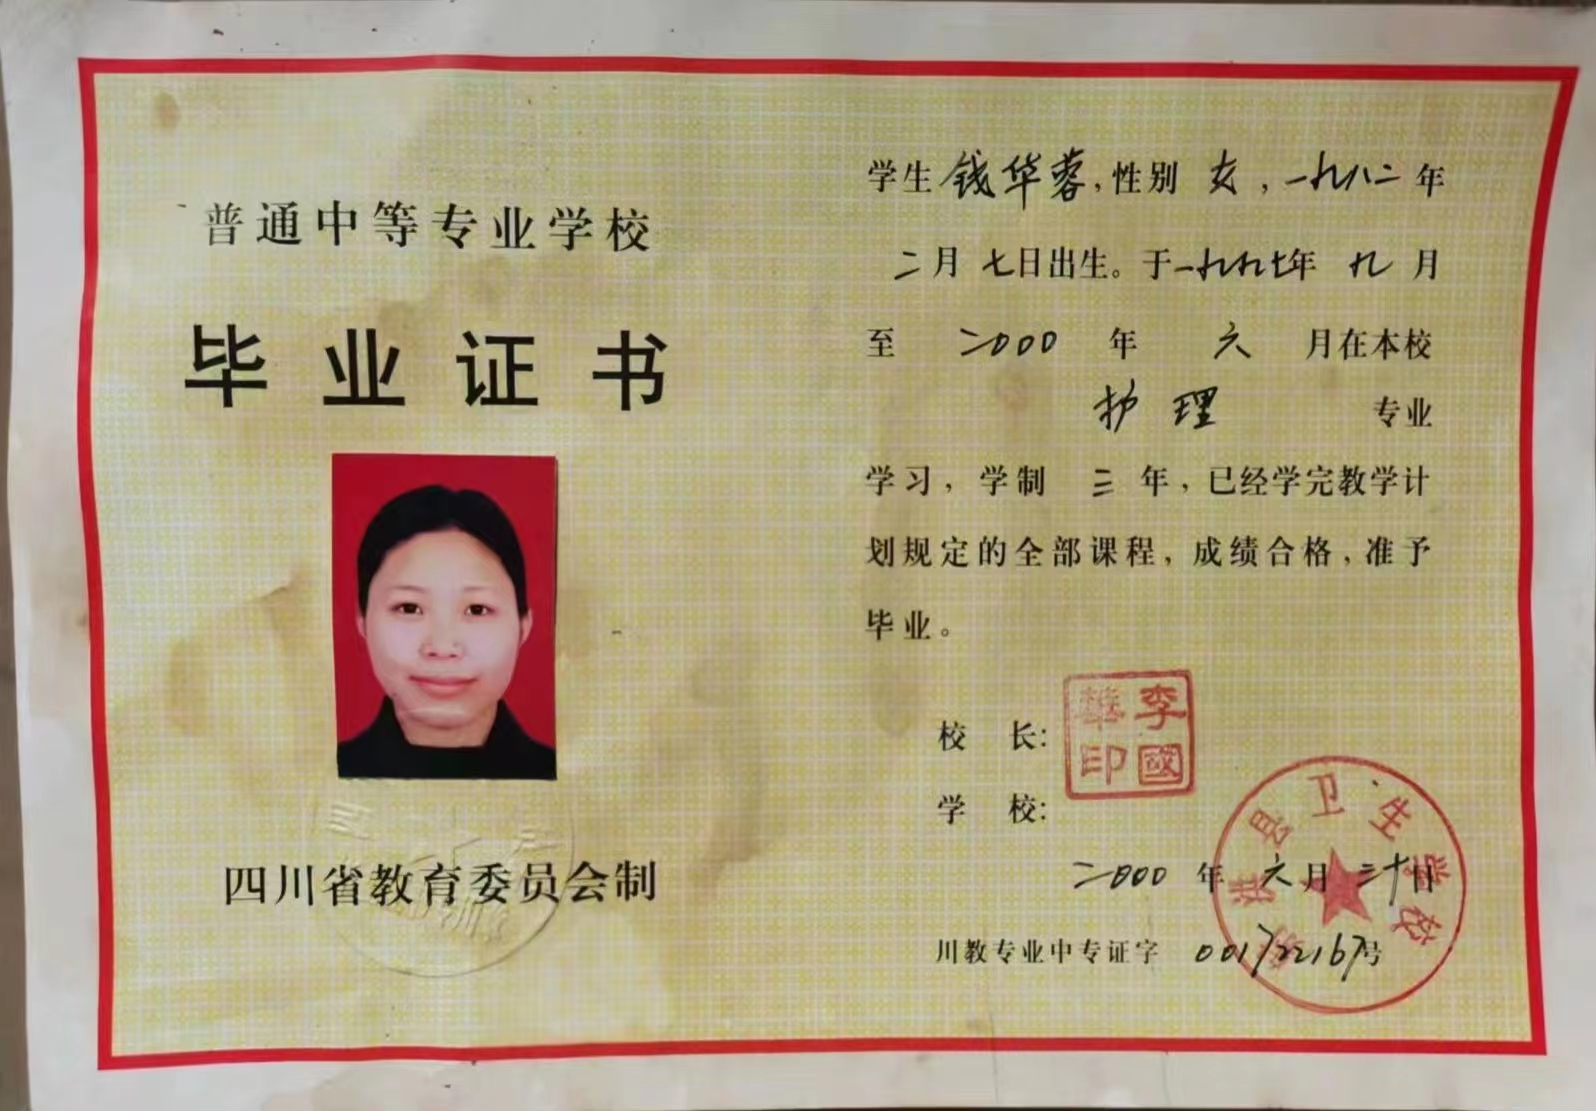 普通中等专业学校
毕业证书
四川省教育委员会制
学生 钱华蓉,性别 女,一九八二 年
二月 七日出生。于一九九七年 九 月
至 二000 年 六 月在本校
护理 专业
学习,学制 三 年,已经学完教学计
划规定的全部课程,成绩合格,准予
毕业。
校 长:
李國華印
学 校:
洪县卫生学校
二000 年 六月 三十日
川教专业中专证字 001722167号